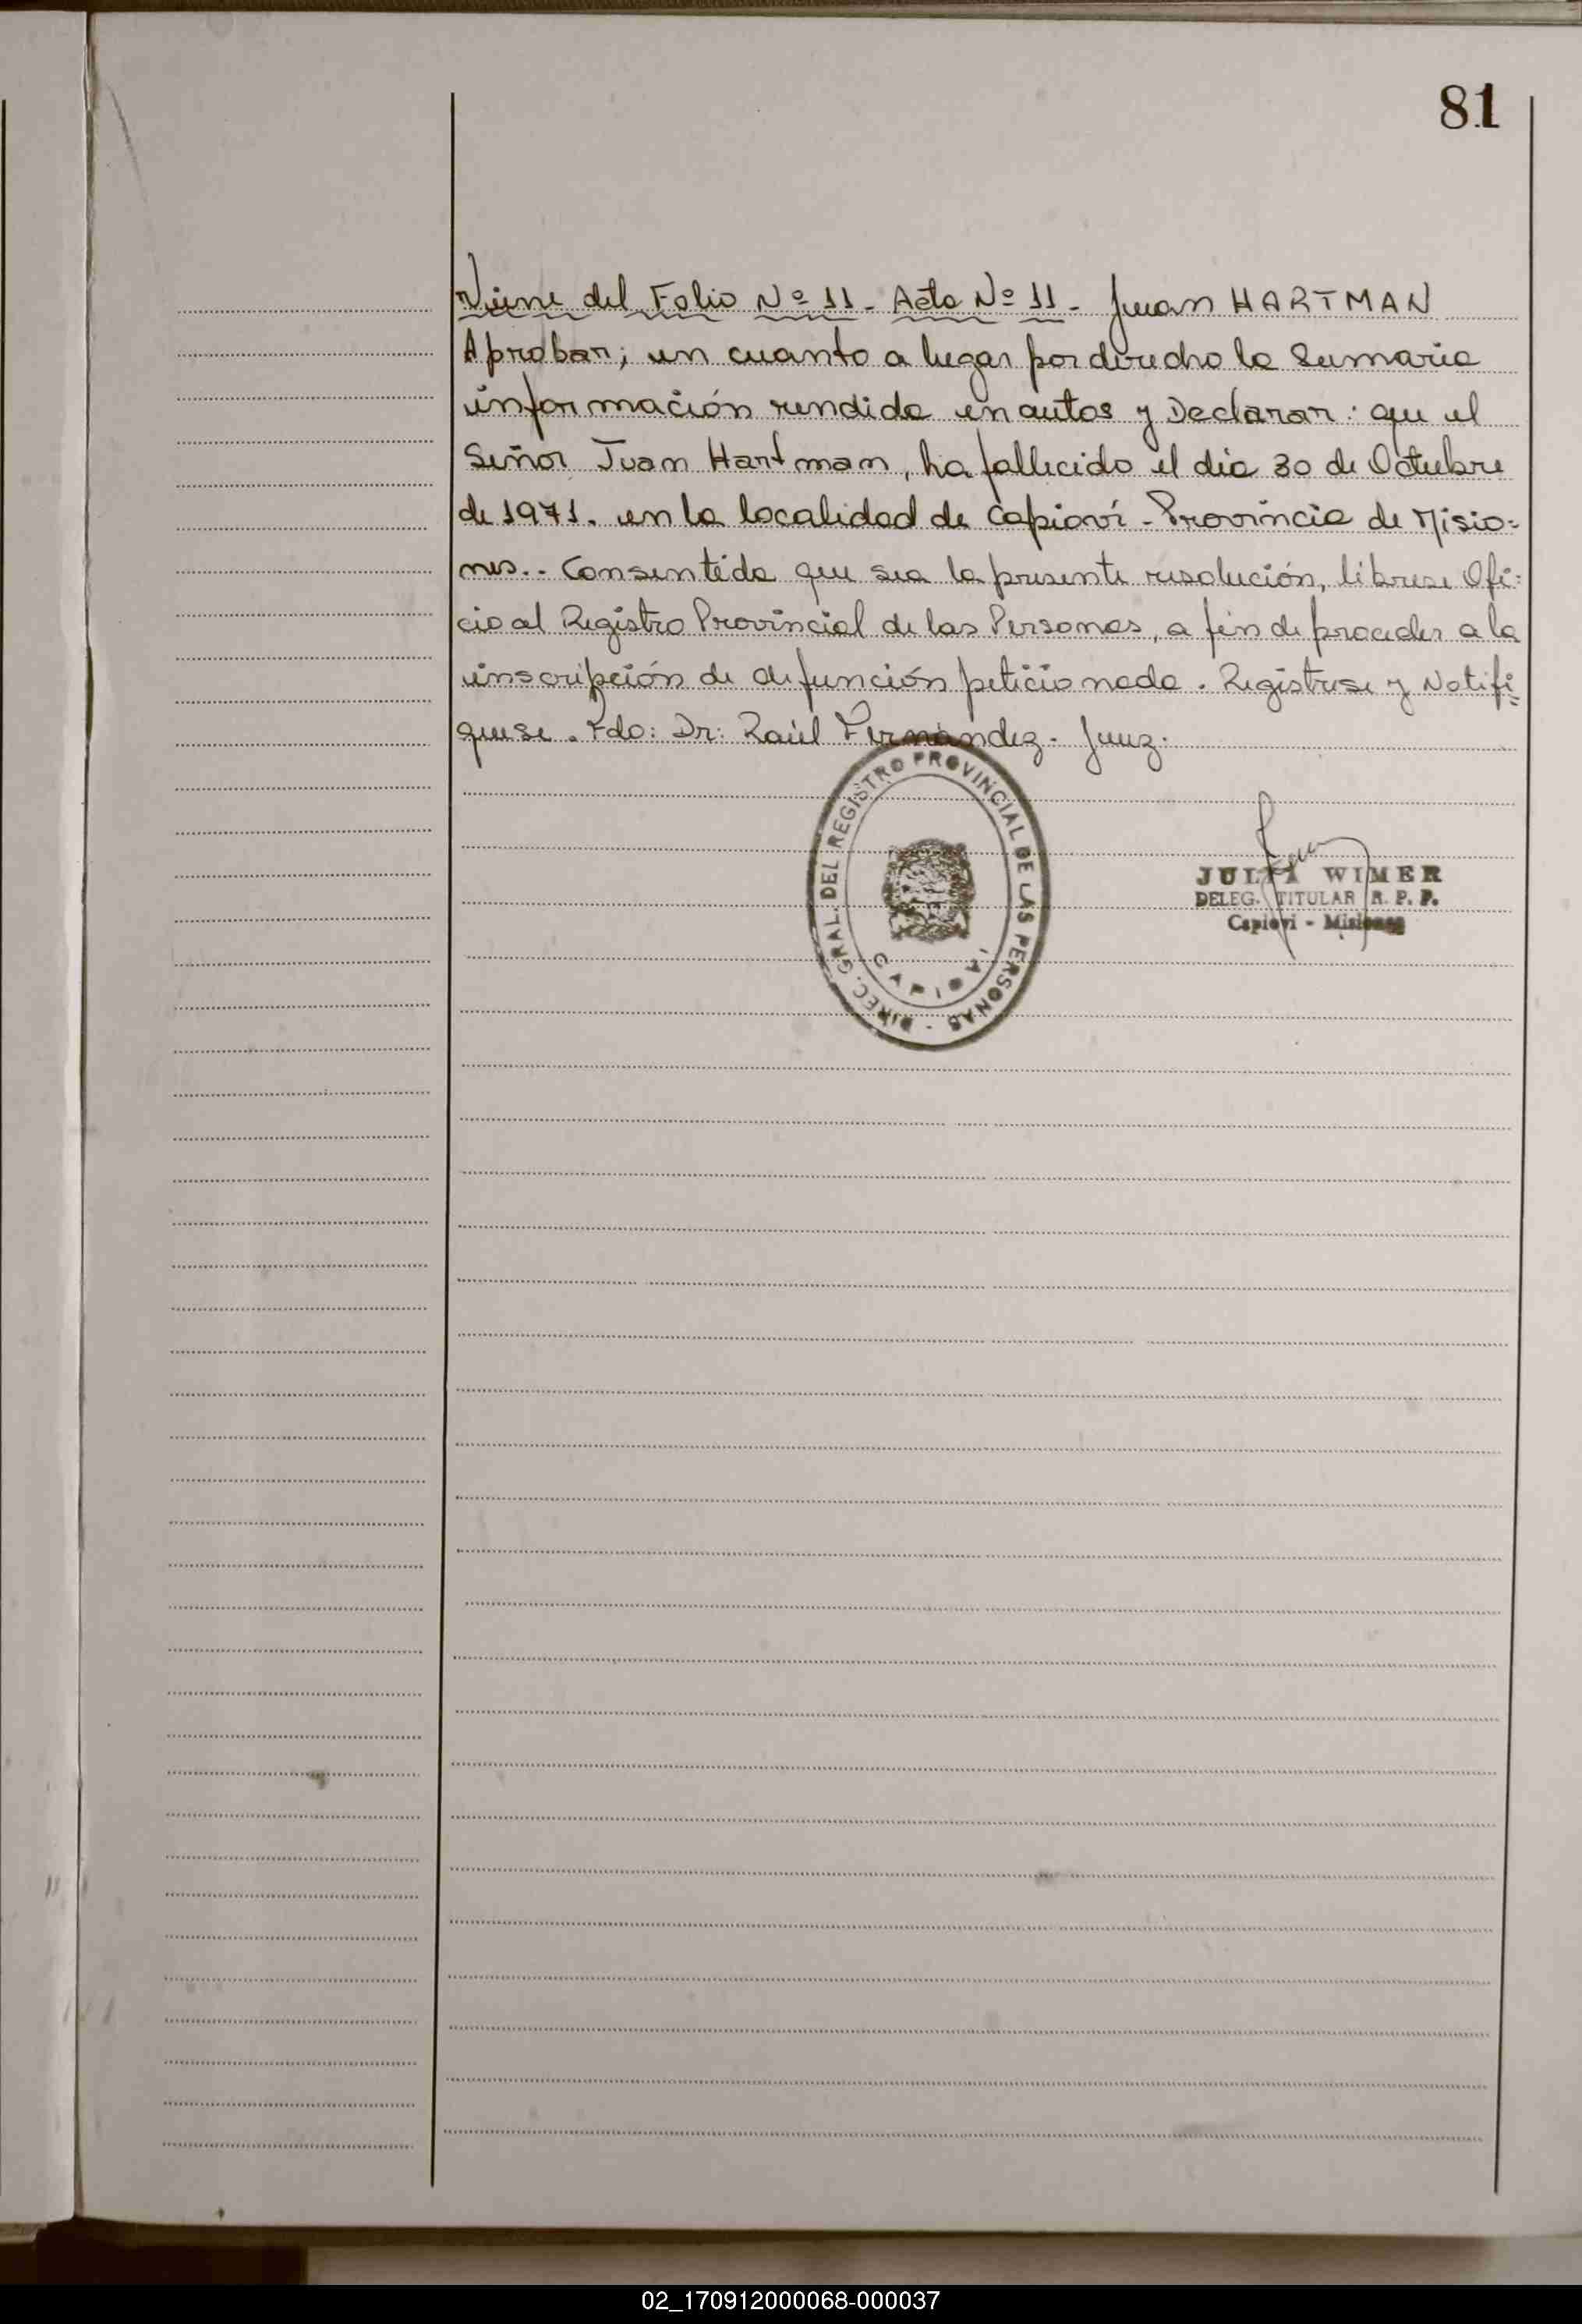 81
Viene del Folio Nº 11 - Acta Nº 11 - Juan HARTMAN
Aprobar; en cuanto a lugar por derecho la Sumaria
información rendida en autos y Declarar: que el
Señor Juan Hartman, ha fallecido el día 30 de Octubre
de 1971. en la localidad de Capioví - Provincia de Misio=
nes.. Consentida que sea la presente resolución, líbrese Ofi=
cio al Registro Provincial de las Personas, a fin de proceder a la
inscripción de defunción peticionada. Regístrese y Notifí=
quese. Fdo: Dr: Raúl Fernández - Juez.
DIREC. GRAL. DEL REGISTRO PROVINCIAL DE LAS PERSONAS -
CAPIOVI
JULIA WIMER
DELEG. TITULAR R. P. P.
Capiovi - Misiones
02_170912000068-000037